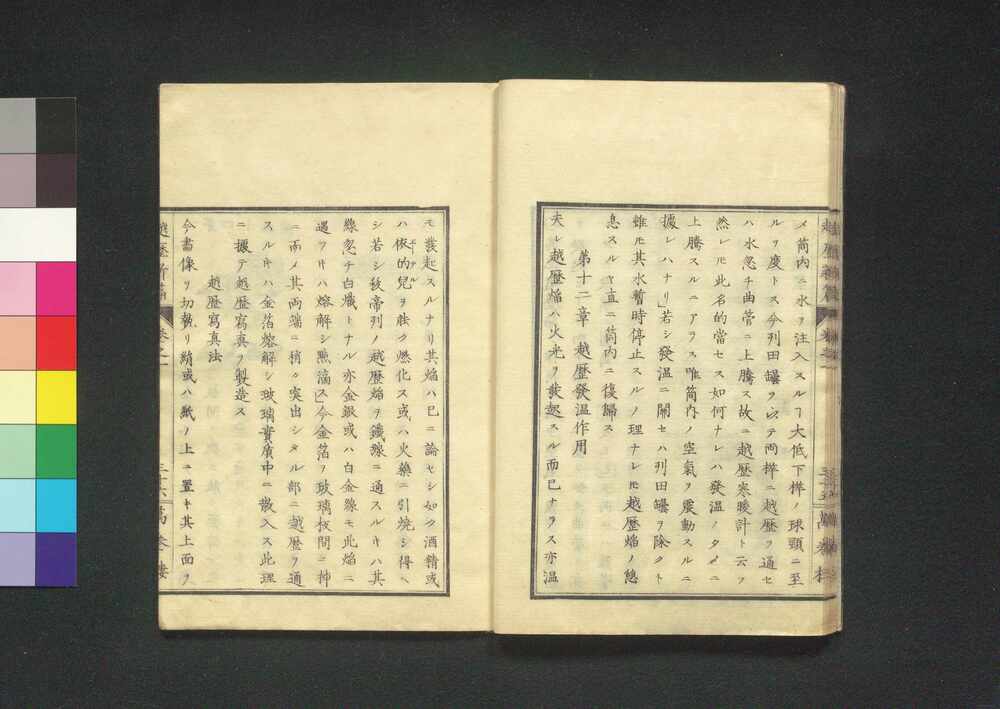 メ筒内ニ水ヲ注入スルヿ大低下樺ノ球頸ニ至
ルヲ度トス今列田罎ヲ以テ両樺ニ越歴ヲ通セ
ハ水忽チ曲管ニ上騰ス故ニ越歴寒暖計ト云フ
然レ𪜈此名的當セス如何ナレハ發温ノタメニ
上騰スルニアラス唯筒内ノ空氣ヲ震動スルニ
據レハナリ」若シ發温ニ關セハ列田罎ヲ除クト
雖𪜈其水暫時停止スルノ理ナレ𪜈越歴焔ノ熄
息スルヤ直ニ筒内ニ復歸ス
第十二章 越歴發温作用
夫レ越歴焔ハ火光ヲ發起スル而已ナラス亦温
モ發起スルナリ其焔ハ已ニ論セシ如ク酒精或
ハ依的兒ヲ能ク燃化ス或ハ火藥ニ引焼シ得ヘ
シ若シ致帝列ノ越歴焔ヲ鐵線ニ通スルキハ其
線忽チ白熾トナル亦金銀或ハ白金線モ此焔ニ
遇フキハ熔解シ㸃滴ス」今金箔ヲ玻璃板間ニ挿
ニ両メ其両端ニ稍々突出シタル部ニ越歴ヲ通
スルキハ金箔熔解シ玻璃實質中ニ散入ス此理
ニ據テ越歴寫真ヲ製造ス
越歴寫真法
今書像ヲ切裁リ絹或ハ紙ノ上ニ置キ其上面ヲ
越歴新編 卷之二 三十六